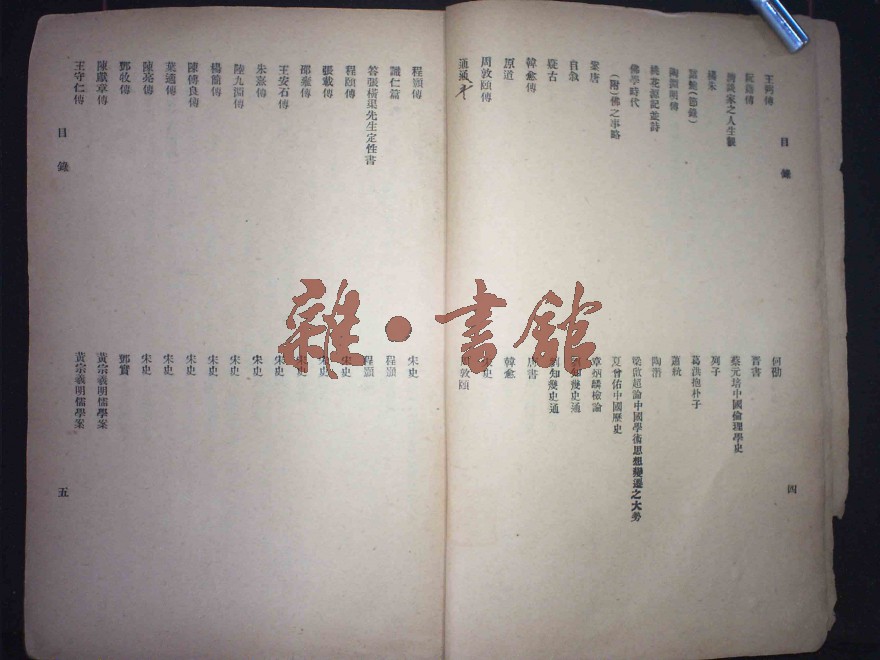 目錄
四
王弼傳
何劭
阮籍傳
晉書
清談家之人生觀
蔡元培中國倫理學史
楊朱
列子
葛洪抱朴子
陶淵明傳
蕭統
桃花源記並詩
陶潛
佛學時代
梁啟超論中國學術思想變遷之大勢
(附)佛之事略
夏曾佑中國歷史
案唐
章炳麟檢論
自敘
劉知幾史通
疑古
劉知幾史通
韓愈傳
唐書
原道
韓愈
周敦頤傳
宋史
通書
周敦頤
程顥傳
宋史
識仁篇
程顥
答張橫渠先生定性書
程顥
程頤傳
宋史
張載傳
宋史
邵雍傳
宋史
王安石傳
宋史
朱熹傳
宋史
陸九淵傳
宋史
楊簡傳
宋史
陳傅良傳
宋史
葉適傳
宋史
陳亮傳
宋史
鄧牧傳
鄧實
陳獻章傳
黃宗羲明儒學案
王守仁傳
黃宗羲明儒學案
目錄
五
雜·書館